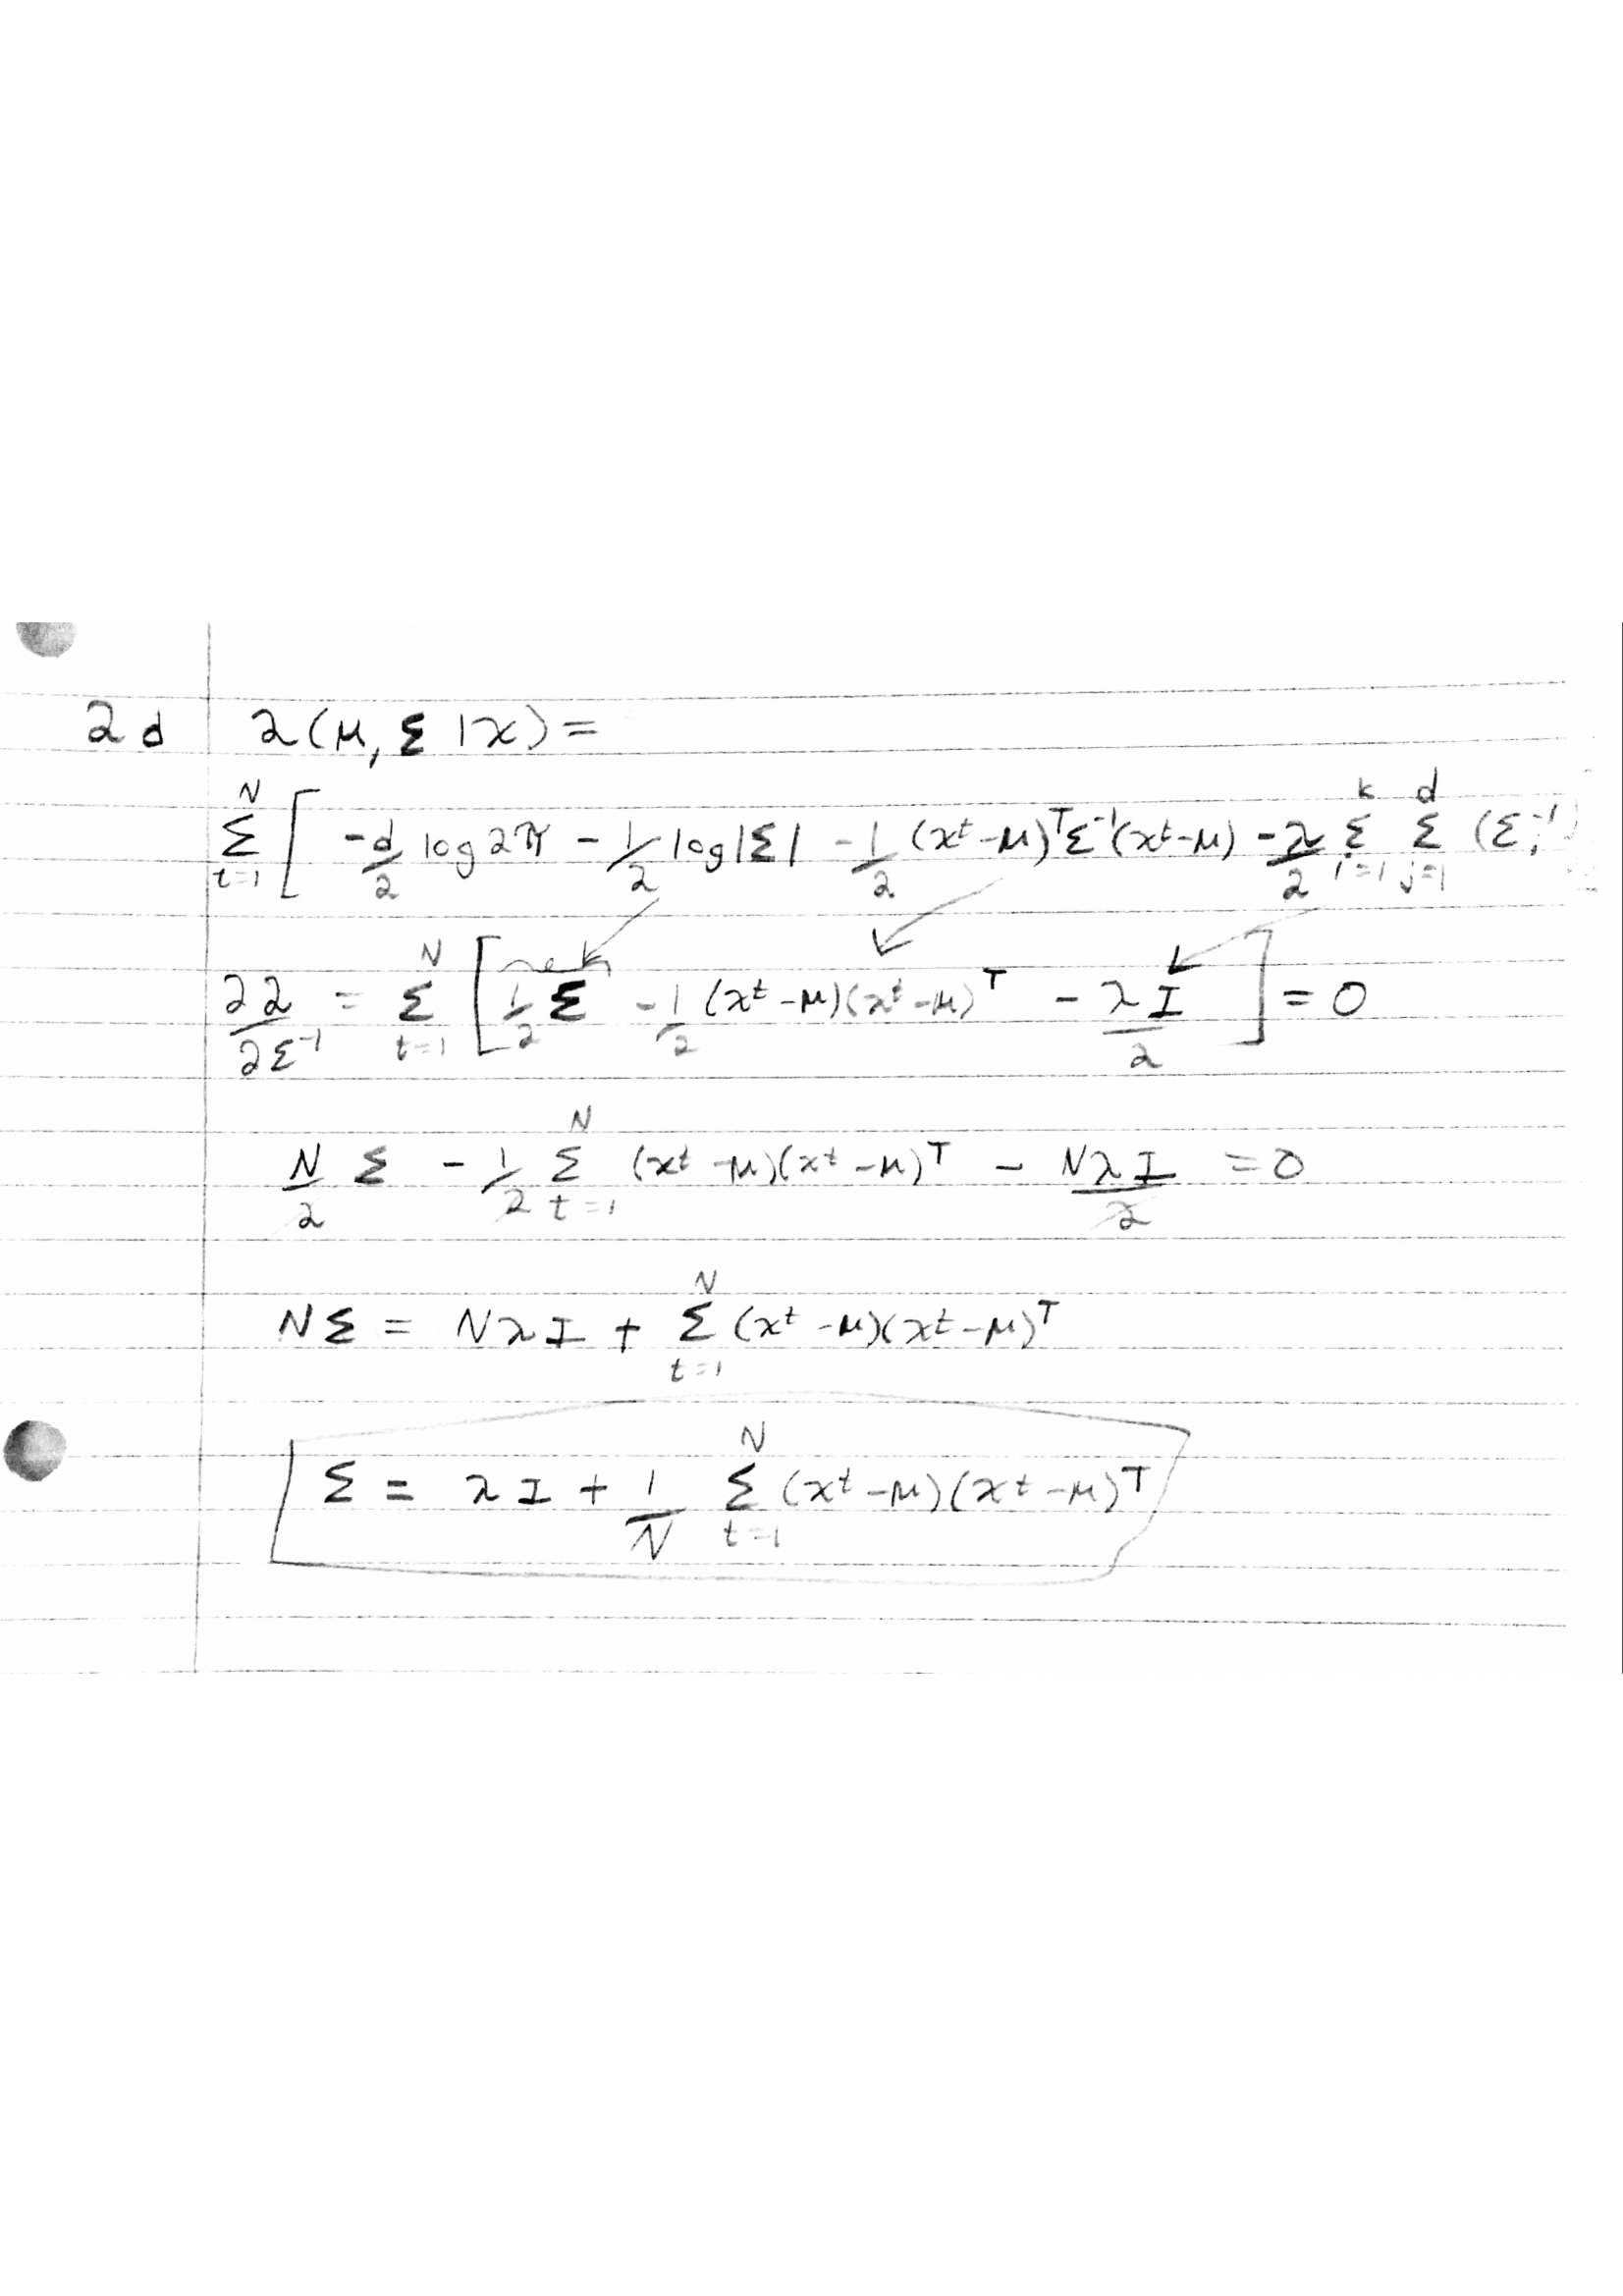 2d 2(μ, Σ | x) =
N Σ t=1 [ -d/2 log 2π - 1/2 log|Σ| - 1/2 (x^t - μ)^T Σ^-1 (x^t - μ) - λ/2 k Σ i=1 d Σ j=1 (Σ_i^-1
∂2/∂Σ^-1 = N Σ t=1 [ 1/2 Σ - 1/2 (x^t - μ)(x^t - μ)^T - λI/2 ] = 0
N/2 Σ - 1/2 N Σ t=1 (x^t - μ)(x^t - μ)^T - NλI/2 = 0
NΣ = NλI + N Σ t=1 (x^t - μ)(x^t - μ)^T
Σ = λI + 1/N N Σ t=1 (x^t - μ)(x^t - μ)^T